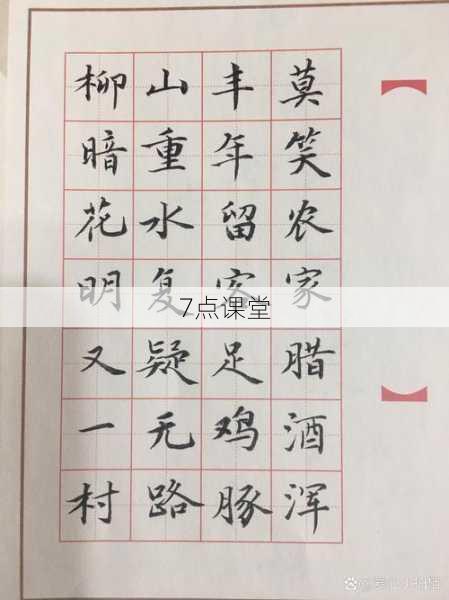 莫笑农家腊酒浑
丰年留客足鸡豚
山重水复疑无路
柳暗花明又一村
7点课堂